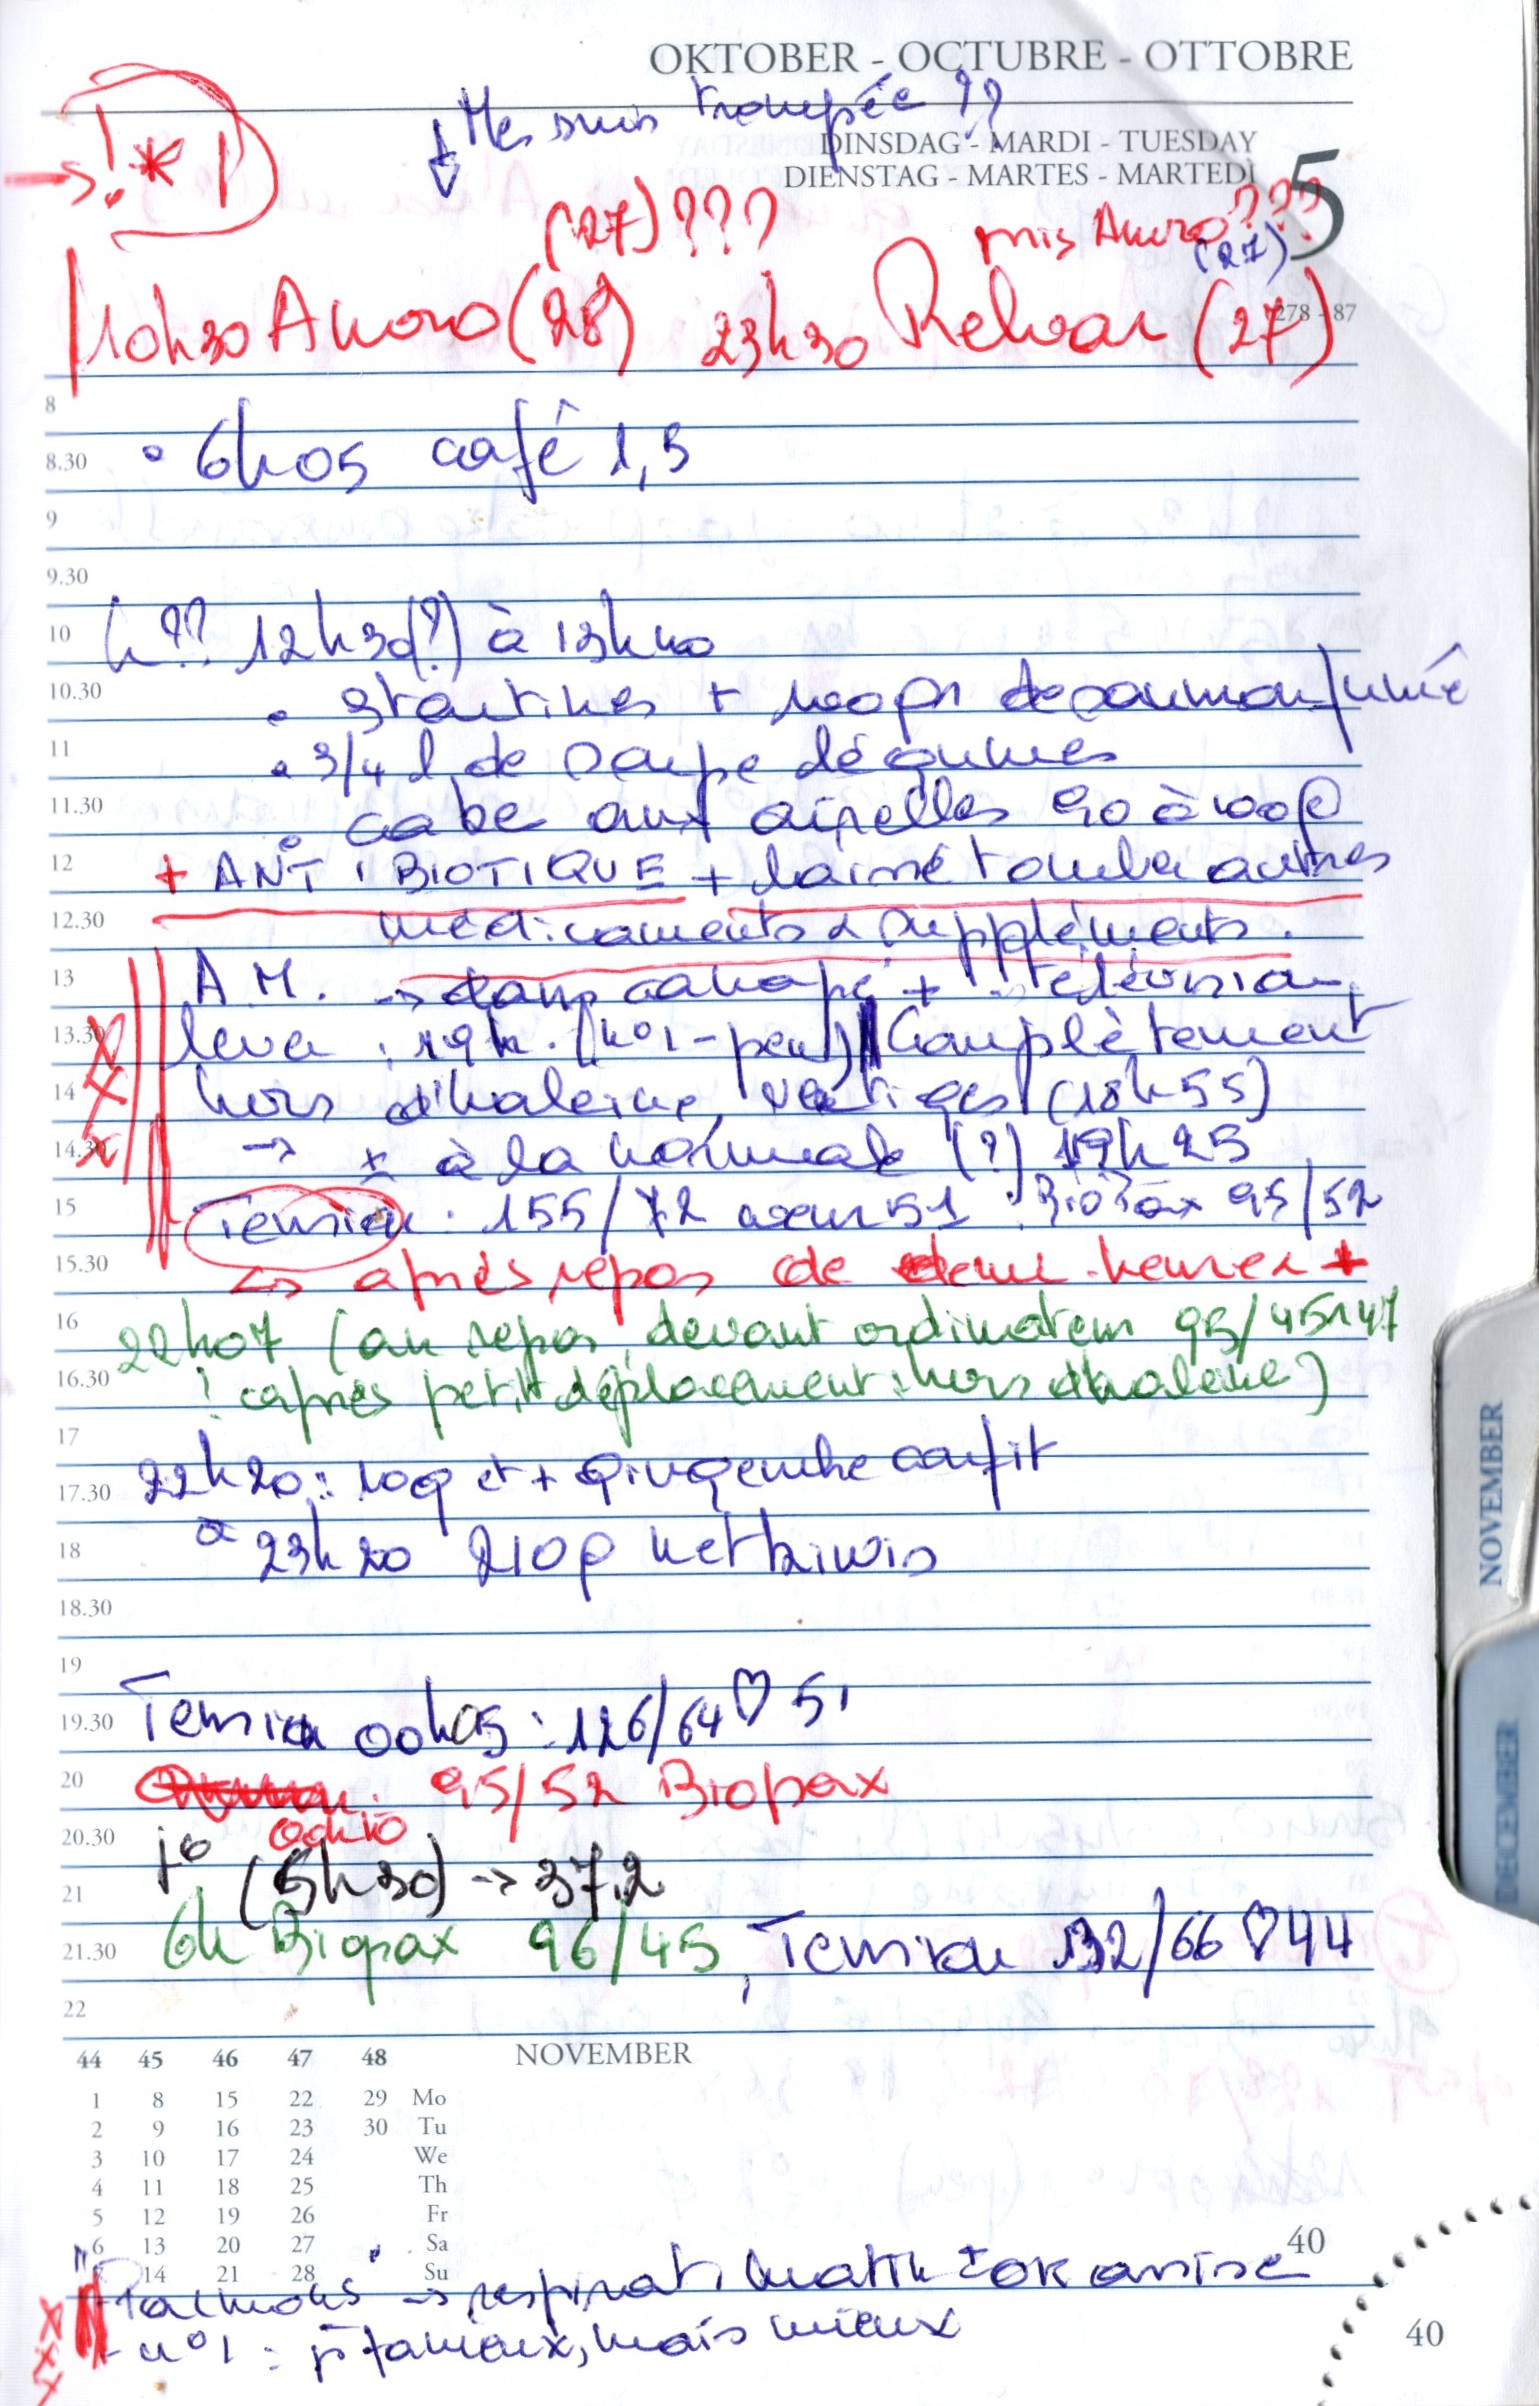 OKTOBER - OCTUBRE - OTTOBRE
Me suis trompée ??
DINSDAG - MARDI - TUESDAY
DIENSTAG - MARTES - MARTEDÌ
5
→ ! *
(27) ???
mis Anoro ???
(27)
278 - 87
10h30 Anoro (28) 23h30 Relvar (27)
8
8.30 • 6h05 café 1,5
9
9.30
10 h?? 12h30(?) à 13h40
10.30 • 3 tartines + 100 gr de saumon fumé
11 • 3/4 l de soupe légumes
11.30 • cake aux airelles 90 à 100 g
12 + ANTIBIOTIQUE + laissé tomber autres
12.30 médicaments & suppléments.
13 A.M. → dans canapé + télévision
13.30 lever : 19h. (n°1 - peu) Complètement
14 hors d'haleine, vertiges (18h55)
14.30 → ± à la normale (?) 19h25
15 Tension : 155/72 coeur 51 : Biopax 95/52
15.30 ↳ après repos de demi-heure +
16 22h07 (au repos, devant ordinateur 95/45 à 47
16.30 ! après petit déplacement : hors d'haleine)
17
17.30 22h20 : 10g ct + gingembre confit
18 à 23h20 210g net kiwis
18.30
19
19.30 Tension 00h05 : 126/64 ♡ 51
20 95/52 Biopax
20.30 00h10
21 (5h30) → 37.2
21.30 6h Biopax 96/45, Tension 132/66 ♡ 44
22
44 45 46 47 48 NOVEMBER
1 8 15 22 29 Mo
2 9 16 23 30 Tu
3 10 17 24 We
4 11 18 25 Th
5 12 19 26 Fr
6 13 20 27 Sa
7 14 21 28 Su
40
"Poumons" → respirat. matin ± OK assise
- n°1 : pas fameux, mais mieux
40
NOVEMBER
DECEMBER